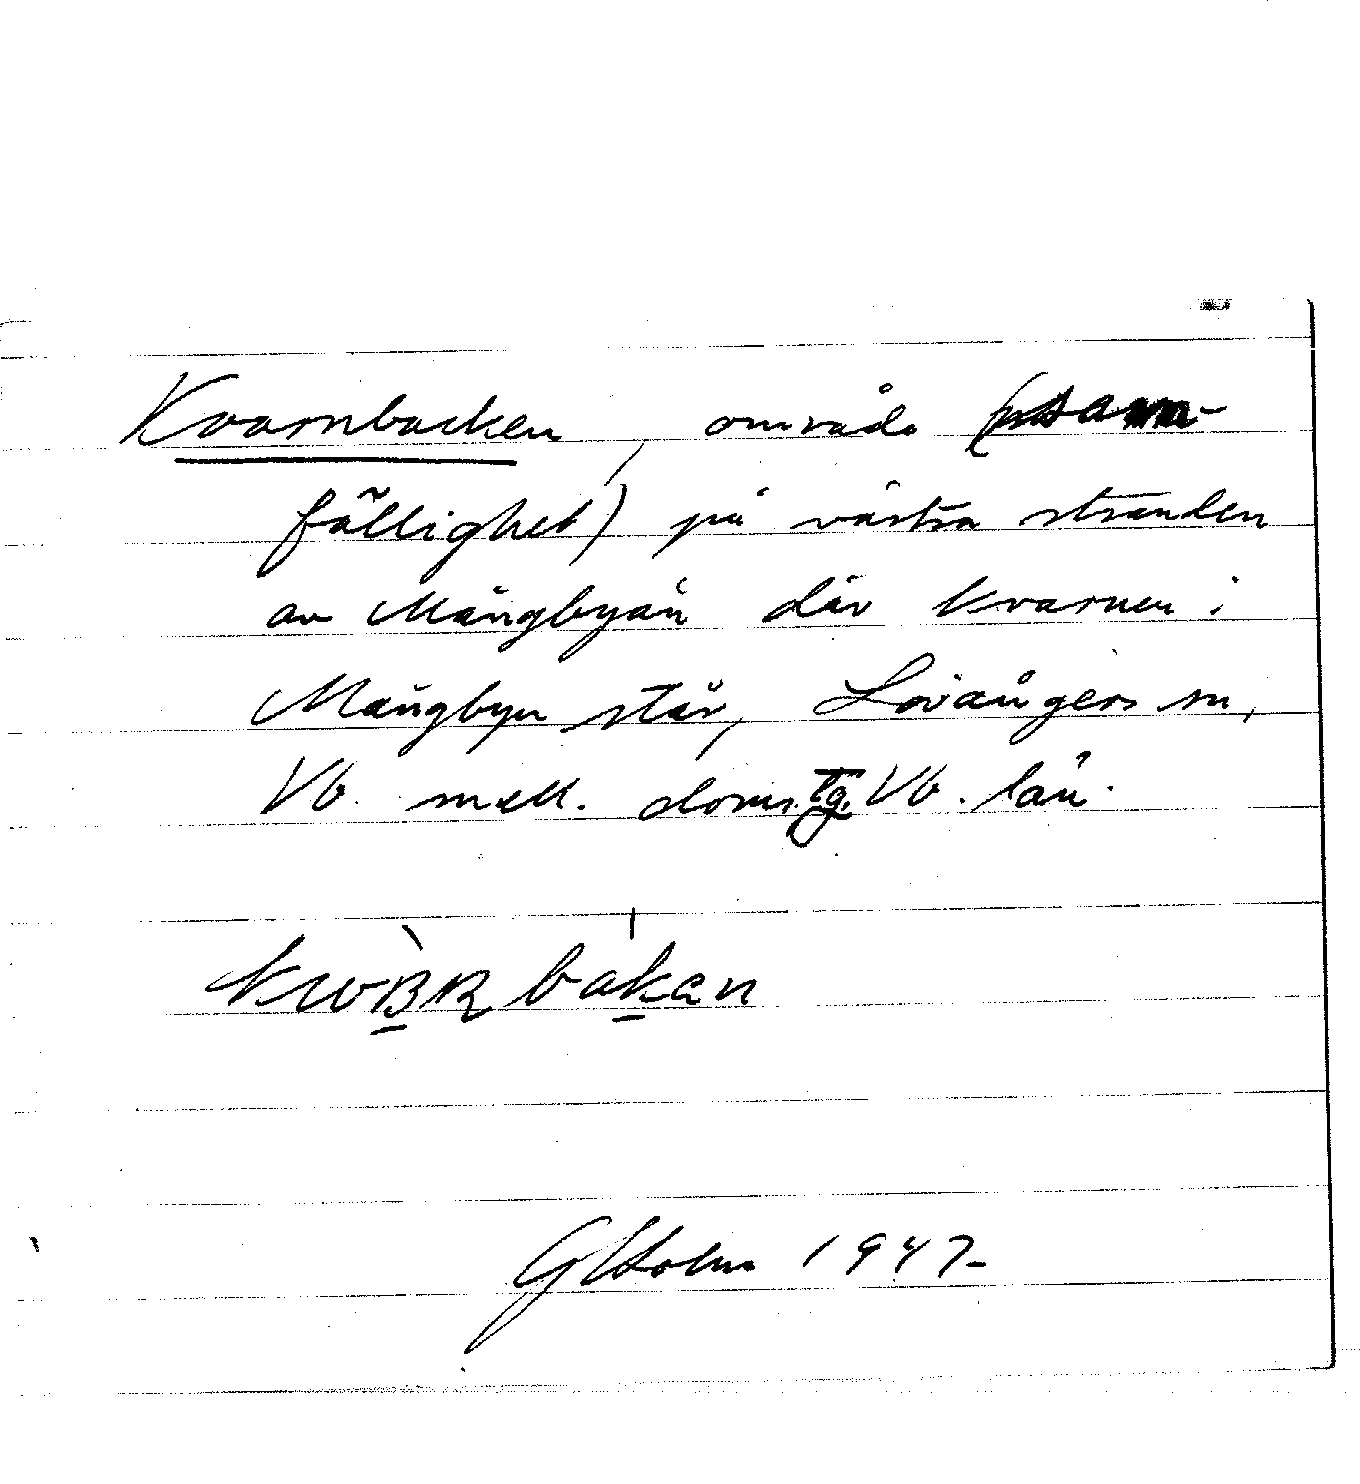 Kvarnbacken, område (sam-
fällighet) på västra stranden
av Mångbyån där kvarnen i
Mångbyn står, Lövångers sn,
Vb. mell. doms.tg. Vb. län.
G Holm 1947-